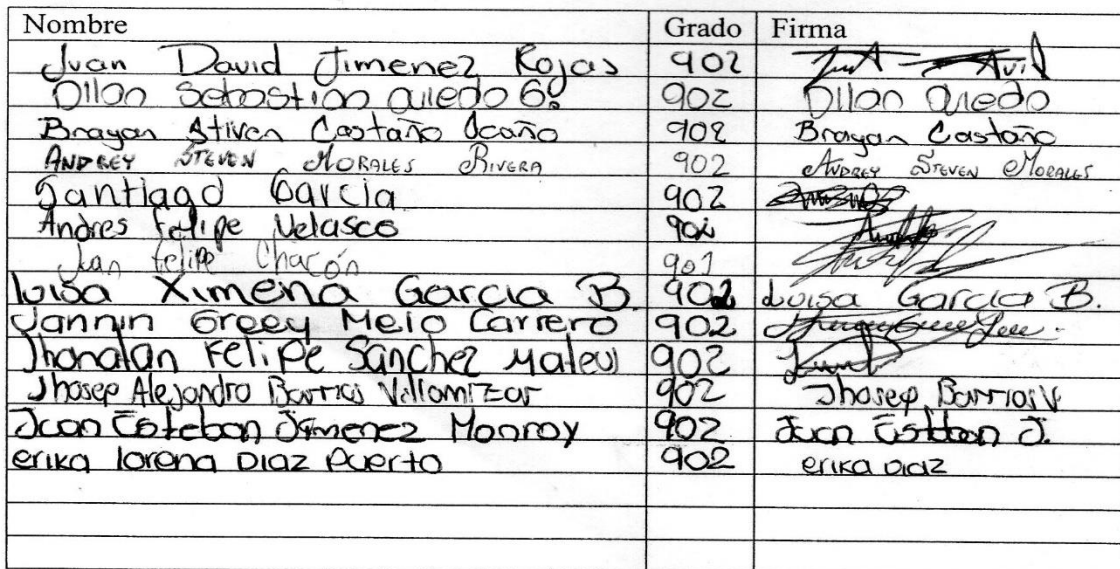 Nombre Grado Firma
Juan David Jimenez Rojas 902
Dilan Sebastian 902 Dilan
Brayan Stiven Castaño Ocaño 902 Brayan Castaño
ANDREY STEVEN MORALES RIVERA 902 ANDREY STEVEN MORALES
Santiago Garcia 902
Andres Felipe Velasco 902
Juan felipe Chacón 901
luisa Ximena Garcia B. 902 Luisa Garcia B.
Yannin Greey Melo Carrero 902
Jhonatan Felipe Sanchez Mateus 902
Jhosep Alejandro Barrios Villamizar 902 Jhosep Barrios V
Juan Esteban Jimenez Monroy 902 Juan Esteban J.
erika lorena Diaz Puerto 902 erika Diaz